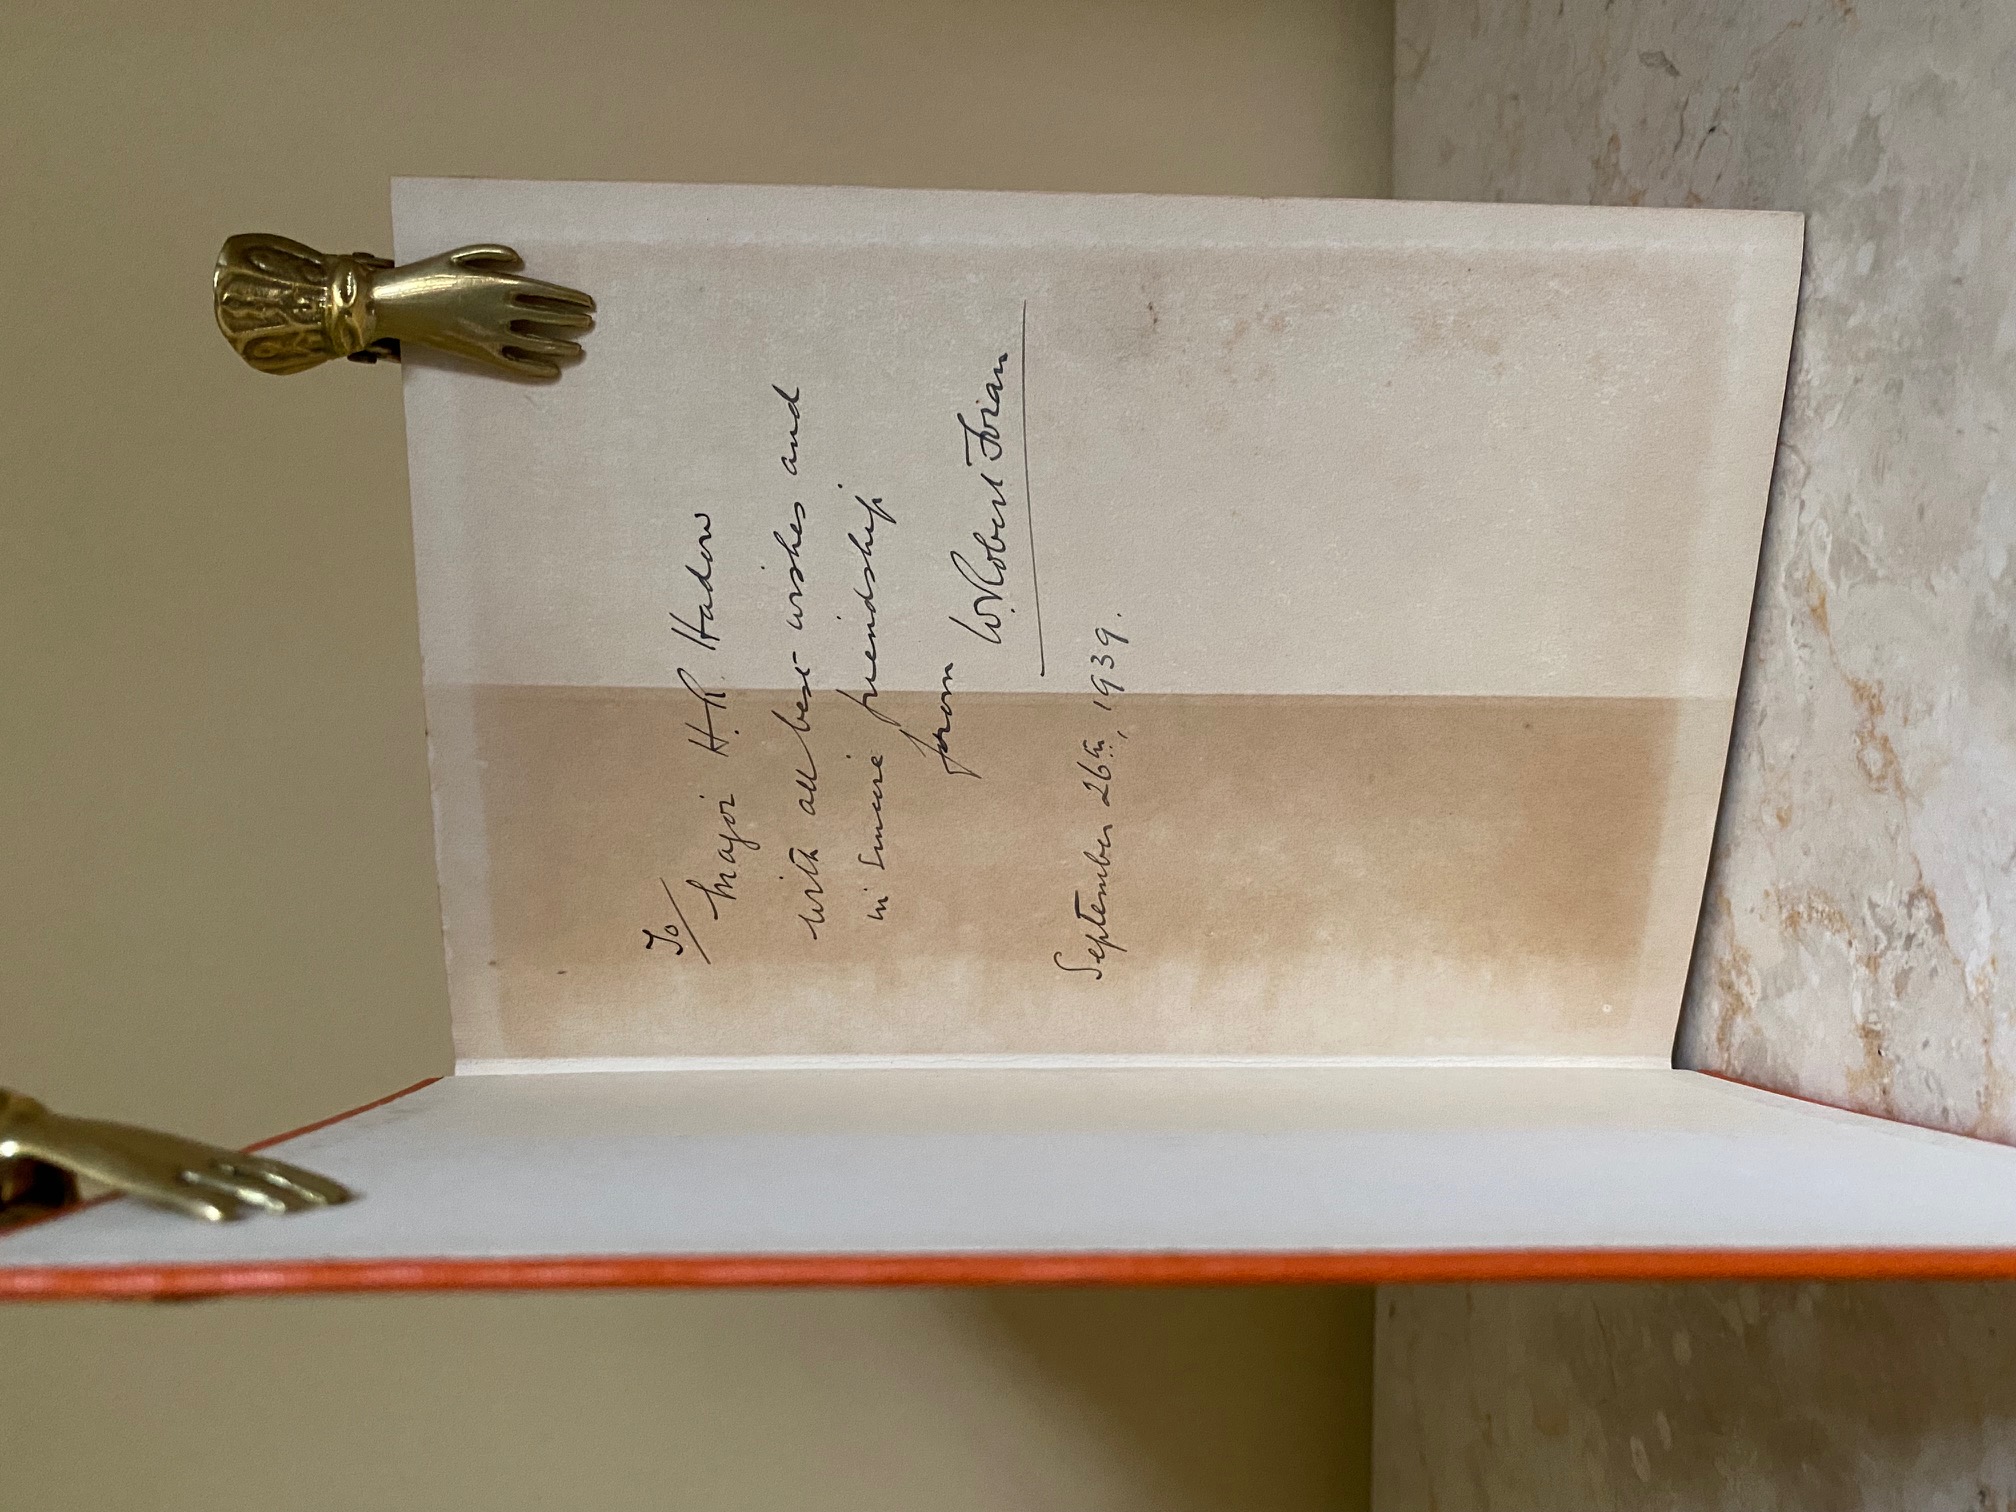 To/
Major H.R. Hadow
with all best wishes and
in sincere friendship
from W. Robert Foran
September 26th, 1939.